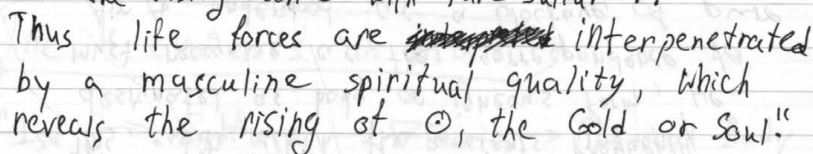 Thus life forces are interpenetrated
by a masculine spiritual quality, which
reveals the rising of ☉, the Gold or Soul."